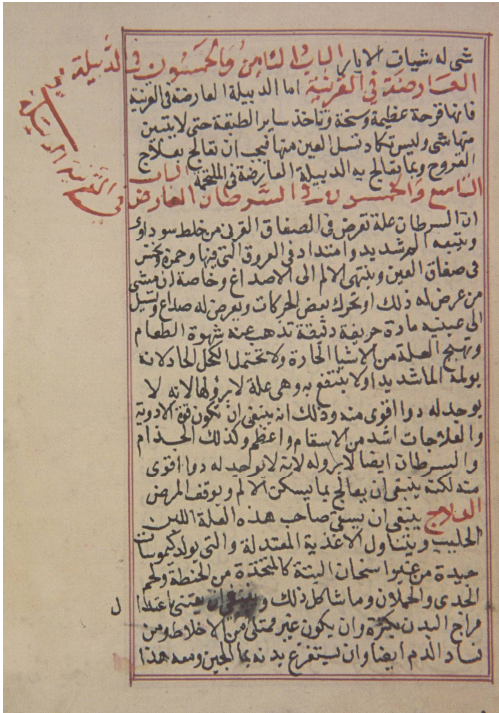 شى له شيات الابار الباب الثامن والخمسون فى الدبيلة
العارضة فى القرنية اما الدبيلة العارضة فى القرنية
فانها قرحة عظيمة وسخة وتاخذ ساير الطبقة حتى لا يتبين
منها شى وليس تكاد تسل العين منها فيجب ان تعالج بعلاج
القروح وبما يعالج به الدبيلة العارضة فى الملتحمة الباب
التاسع والخمسون فى السرطان العارض
فى القرنية
ان السرطان علة تعرض فى الصفاق القرنى من خلط سوداوى
ويتبعه الم شديد وامتداد فى العروق التى فيها وحمرة ونخس
فى صفاق العين وينتهى الالم الى الاصداغ وخاصة ان مشى
من عرض له ذلك او تحرك بعض الحركات ويعرض له صداع وتسيل
الى عينيه مادة حريفة دقيقة تذهب عنه شهوة الطعام
وتهيج العلة من الاشيا الحارة ولا تحتمل الكحل الحاد لانه
يولمه الما شديدا ولا ينتفع به وهى علة لا برو لها لانه لا
يوجد له دوا اقوى منه وذلك انه ينبغى ان يكون قوة الادوية
والعلاجات اشد من الاسقام واعظم وكذلك الجذام
والسرطان ايضا لا برو له لانه لا يوجد له دوا اقوى
منه لكنه ينبغى ان يعالج بما يسكن الالم ويوقف المرض
العلاج ينبغى ان يسقى صاحب هذه العلة اللبن
الحليب ويتناول الاغذية المعتدلة والتى يولد كيموسات
جيدة من غير اسخان البتة كالمتخذة من الحنطة ولحم
الجدى والحملان وما شاكل ذلك وينبغى ان يعتنى باعتدال
مزاج البدن بكثرة وان يكون غير ممتلى من الاخلاط ومن
فساد الدم ايضا وان يستفرغ بدنه بما الجبن ومعه هذا